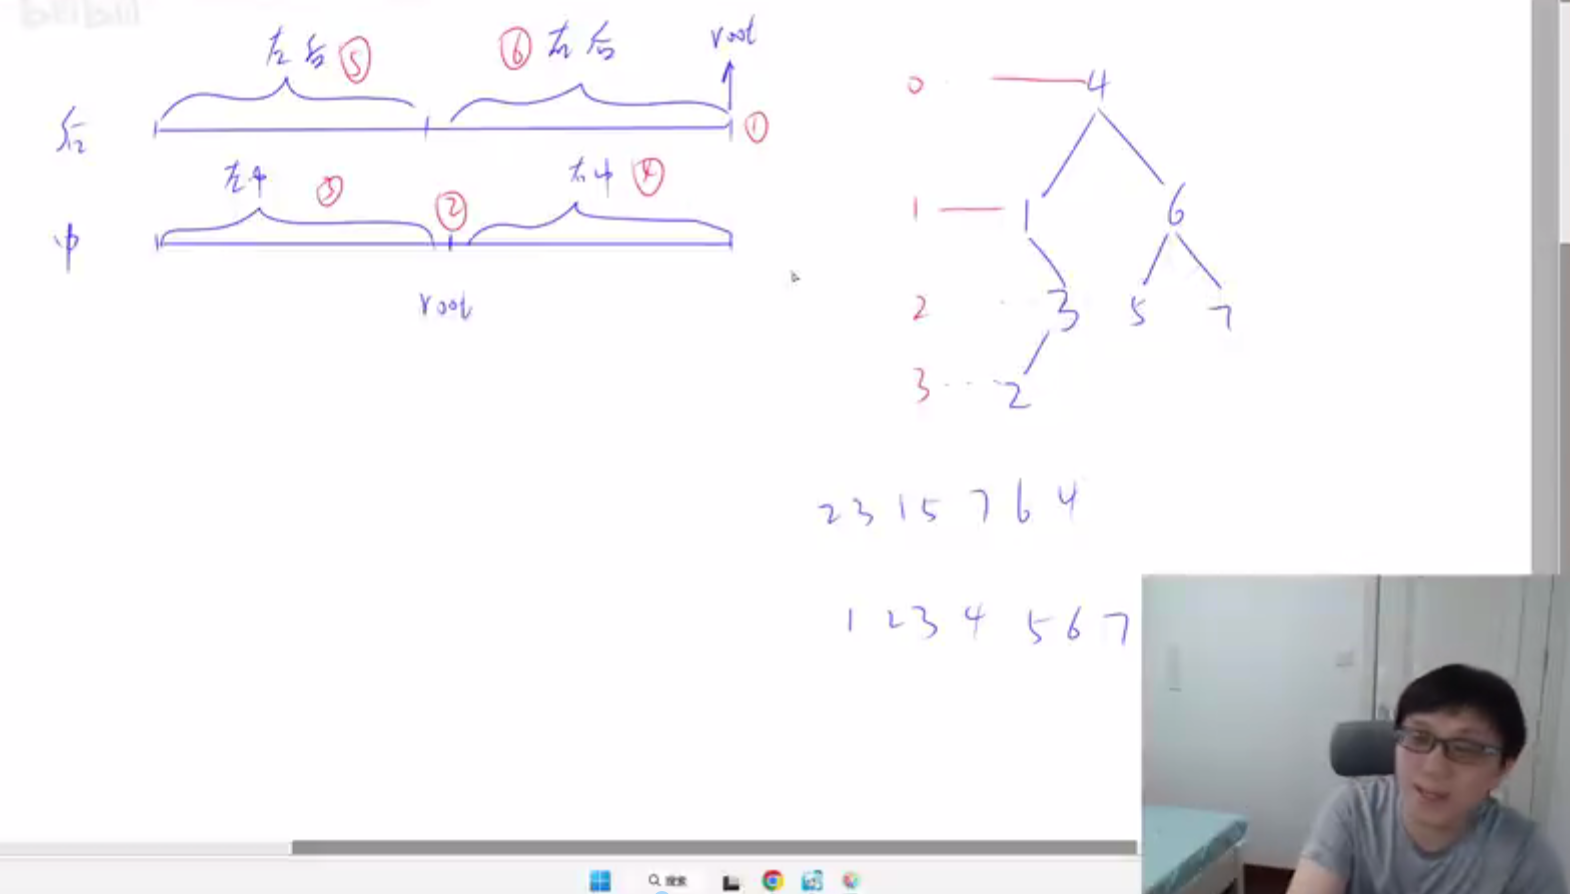 bilibili
左后 ⑤ ⑥ 右后 root
后 ①
左中 ③ ② 右中 ④
中
root
0 4
1 1 6
2 3 5 7
3 2
2 3 1 5 7 6 4
1 2 3 4 5 6 7
搜索